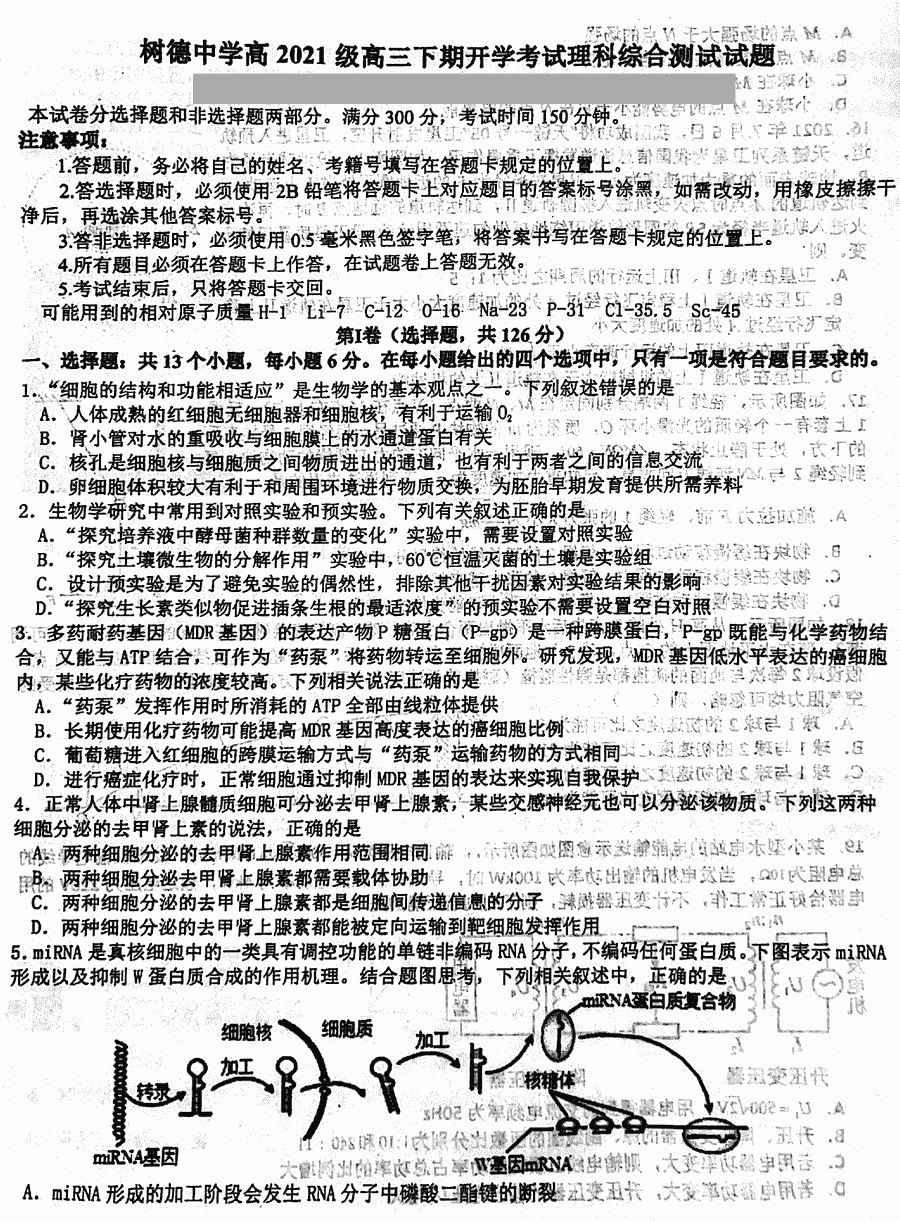 树德中学高 2021 级高三下期开学考试理科综合测试试题
本试卷分选择题和非选择题两部分。满分 300 分，考试时间 150 分钟。
注意事项：
1.答题前，务必将自己的姓名、考籍号填写在答题卡规定的位置上。
2.答选择题时，必须使用 2B 铅笔将答题卡上对应题目的答案标号涂黑，如需改动，用橡皮擦擦干
净后，再选涂其他答案标号。
3.答非选择题时，必须使用 0.5 毫米黑色签字笔，将答案书写在答题卡规定的位置上。
4.所有题目必须在答题卡上作答，在试题卷上答题无效。
5.考试结束后，只将答题卡交回。
可能用到的相对原子质量 H-1 Li-7 C-12 O-16 Na-23 P-31 Cl-35.5 Sc-45
第I卷（选择题，共 126 分）
一、选择题：共 13 个小题，每小题 6 分。在每小题给出的四个选项中，只有一项是符合题目要求的。
1．“细胞的结构和功能相适应”是生物学的基本观点之一。下列叙述错误的是
A．人体成熟的红细胞无细胞器和细胞核，有利于运输 O₂
B．肾小管对水的重吸收与细胞膜上的水通道蛋白有关
C．核孔是细胞核与细胞质之间物质进出的通道，也有利于两者之间的信息交流
D．卵细胞体积较大有利于和周围环境进行物质交换，为胚胎早期发育提供所需养料
2．生物学研究中常用到对照实验和预实验。下列有关叙述正确的是
A．“探究培养液中酵母菌种群数量的变化”实验中，需要设置对照实验
B．“探究土壤微生物的分解作用”实验中，60℃恒温灭菌的土壤是实验组
C．设计预实验是为了避免实验的偶然性，排除其他干扰因素对实验结果的影响
D．“探究生长素类似物促进插条生根的最适浓度”的预实验不需要设置空白对照
3．多药耐药基因（MDR 基因）的表达产物 P 糖蛋白（P-gp）是一种跨膜蛋白，P-gp 既能与化学药物结
合，又能与 ATP 结合，可作为“药泵”将药物转运至细胞外。研究发现，MDR 基因低水平表达的癌细胞
内，某些化疗药物的浓度较高。下列相关说法正确的是
A．“药泵”发挥作用时所消耗的 ATP 全部由线粒体提供
B．长期使用化疗药物可能提高 MDR 基因高度表达的癌细胞比例
C．葡萄糖进入红细胞的跨膜运输方式与“药泵”运输药物的方式相同
D．进行癌症化疗时，正常细胞通过抑制 MDR 基因的表达来实现自我保护
4．正常人体中肾上腺髓质细胞可分泌去甲肾上腺素，某些交感神经元也可以分泌该物质。下列这两种
细胞分泌的去甲肾上素的说法，正确的是
A．两种细胞分泌的去甲肾上腺素作用范围相同
B．两种细胞分泌去甲肾上腺素都需要载体协助
C．两种细胞分泌的去甲肾上腺素都是细胞间传递信息的分子
D．两种细胞分泌的去甲肾上腺素都能被定向运输到靶细胞发挥作用
5．miRNA 是真核细胞中的一类具有调控功能的单链非编码 RNA 分子，不编码任何蛋白质。下图表示 miRNA
形成以及抑制 W 蛋白质合成的作用机理。结合题图思考，下列相关叙述中，正确的是
miRNA蛋白质复合物
细胞核
细胞质
加工
加工
转录
核糖体
miRNA基因
W基因mRNA
A．miRNA 形成的加工阶段会发生 RNA 分子中磷酸二酯键的断裂